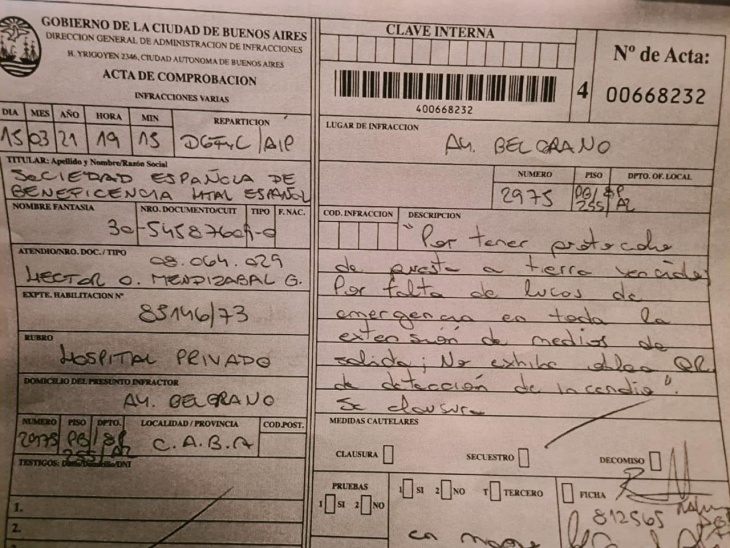 GOBIERNO DE LA CIUDAD DE BUENOS AIRES
DIRECCION GENERAL DE ADMINISTRACION DE INFRACCIONES
H. YRIGOYEN 2346, CIUDAD AUTONOMA DE BUENOS AIRES
ACTA DE COMPROBACION
INFRACCIONES VARIAS
DIA MES AÑO HORA MIN REPARTICION
15 03 21 19 15 DGFyC/AIP
TITULAR: Apellido y Nombre/Razón Social
SOCIEDAD ESPAÑOLA DE
BENEFICENCIA HTAL ESPAÑOL
NOMBRE FANTASIA NRO. DOCUMENTO/CUIT TIPO F. NAC.
ATENDIO/NRO. DOC. / TIPO 08.064.029
HECTOR O. MENDIZABAL G.
EXPTE. HABILITACION Nº
83146/73
RUBRO
HOSPITAL PRIVADO
DOMICILIO DEL PRESUNTO INFRACTOR
AV. BELGRANO
NUMERO PISO DPTO. LOCALIDAD / PROVINCIA COD.POST.
2975 PB/8P C.A.B.A
255/A2
TESTIGOS:
1.
2.
CLAVE INTERNA
400668232
4
Nº de Acta:
00668232
LUGAR DE INFRACCION
AV. BELGRANO
NUMERO PISO DPTO. OF. LOCAL
2975 PB/8P
255/A2
COD. INFRACCION DESCRIPCION
"Por tener protocolo
de puesta a tierra vencido;
Por falta de luces de
emergencia en toda la
extensión de medios de
salida; No exhibe QR
de detección de Incendio".
Se clausura
MEDIDAS CAUTELARES
CLAUSURA SECUESTRO DECOMISO
PRUEBAS
1 SI 2 NO 1 SI 2 NO T TERCERO FICHA
812565